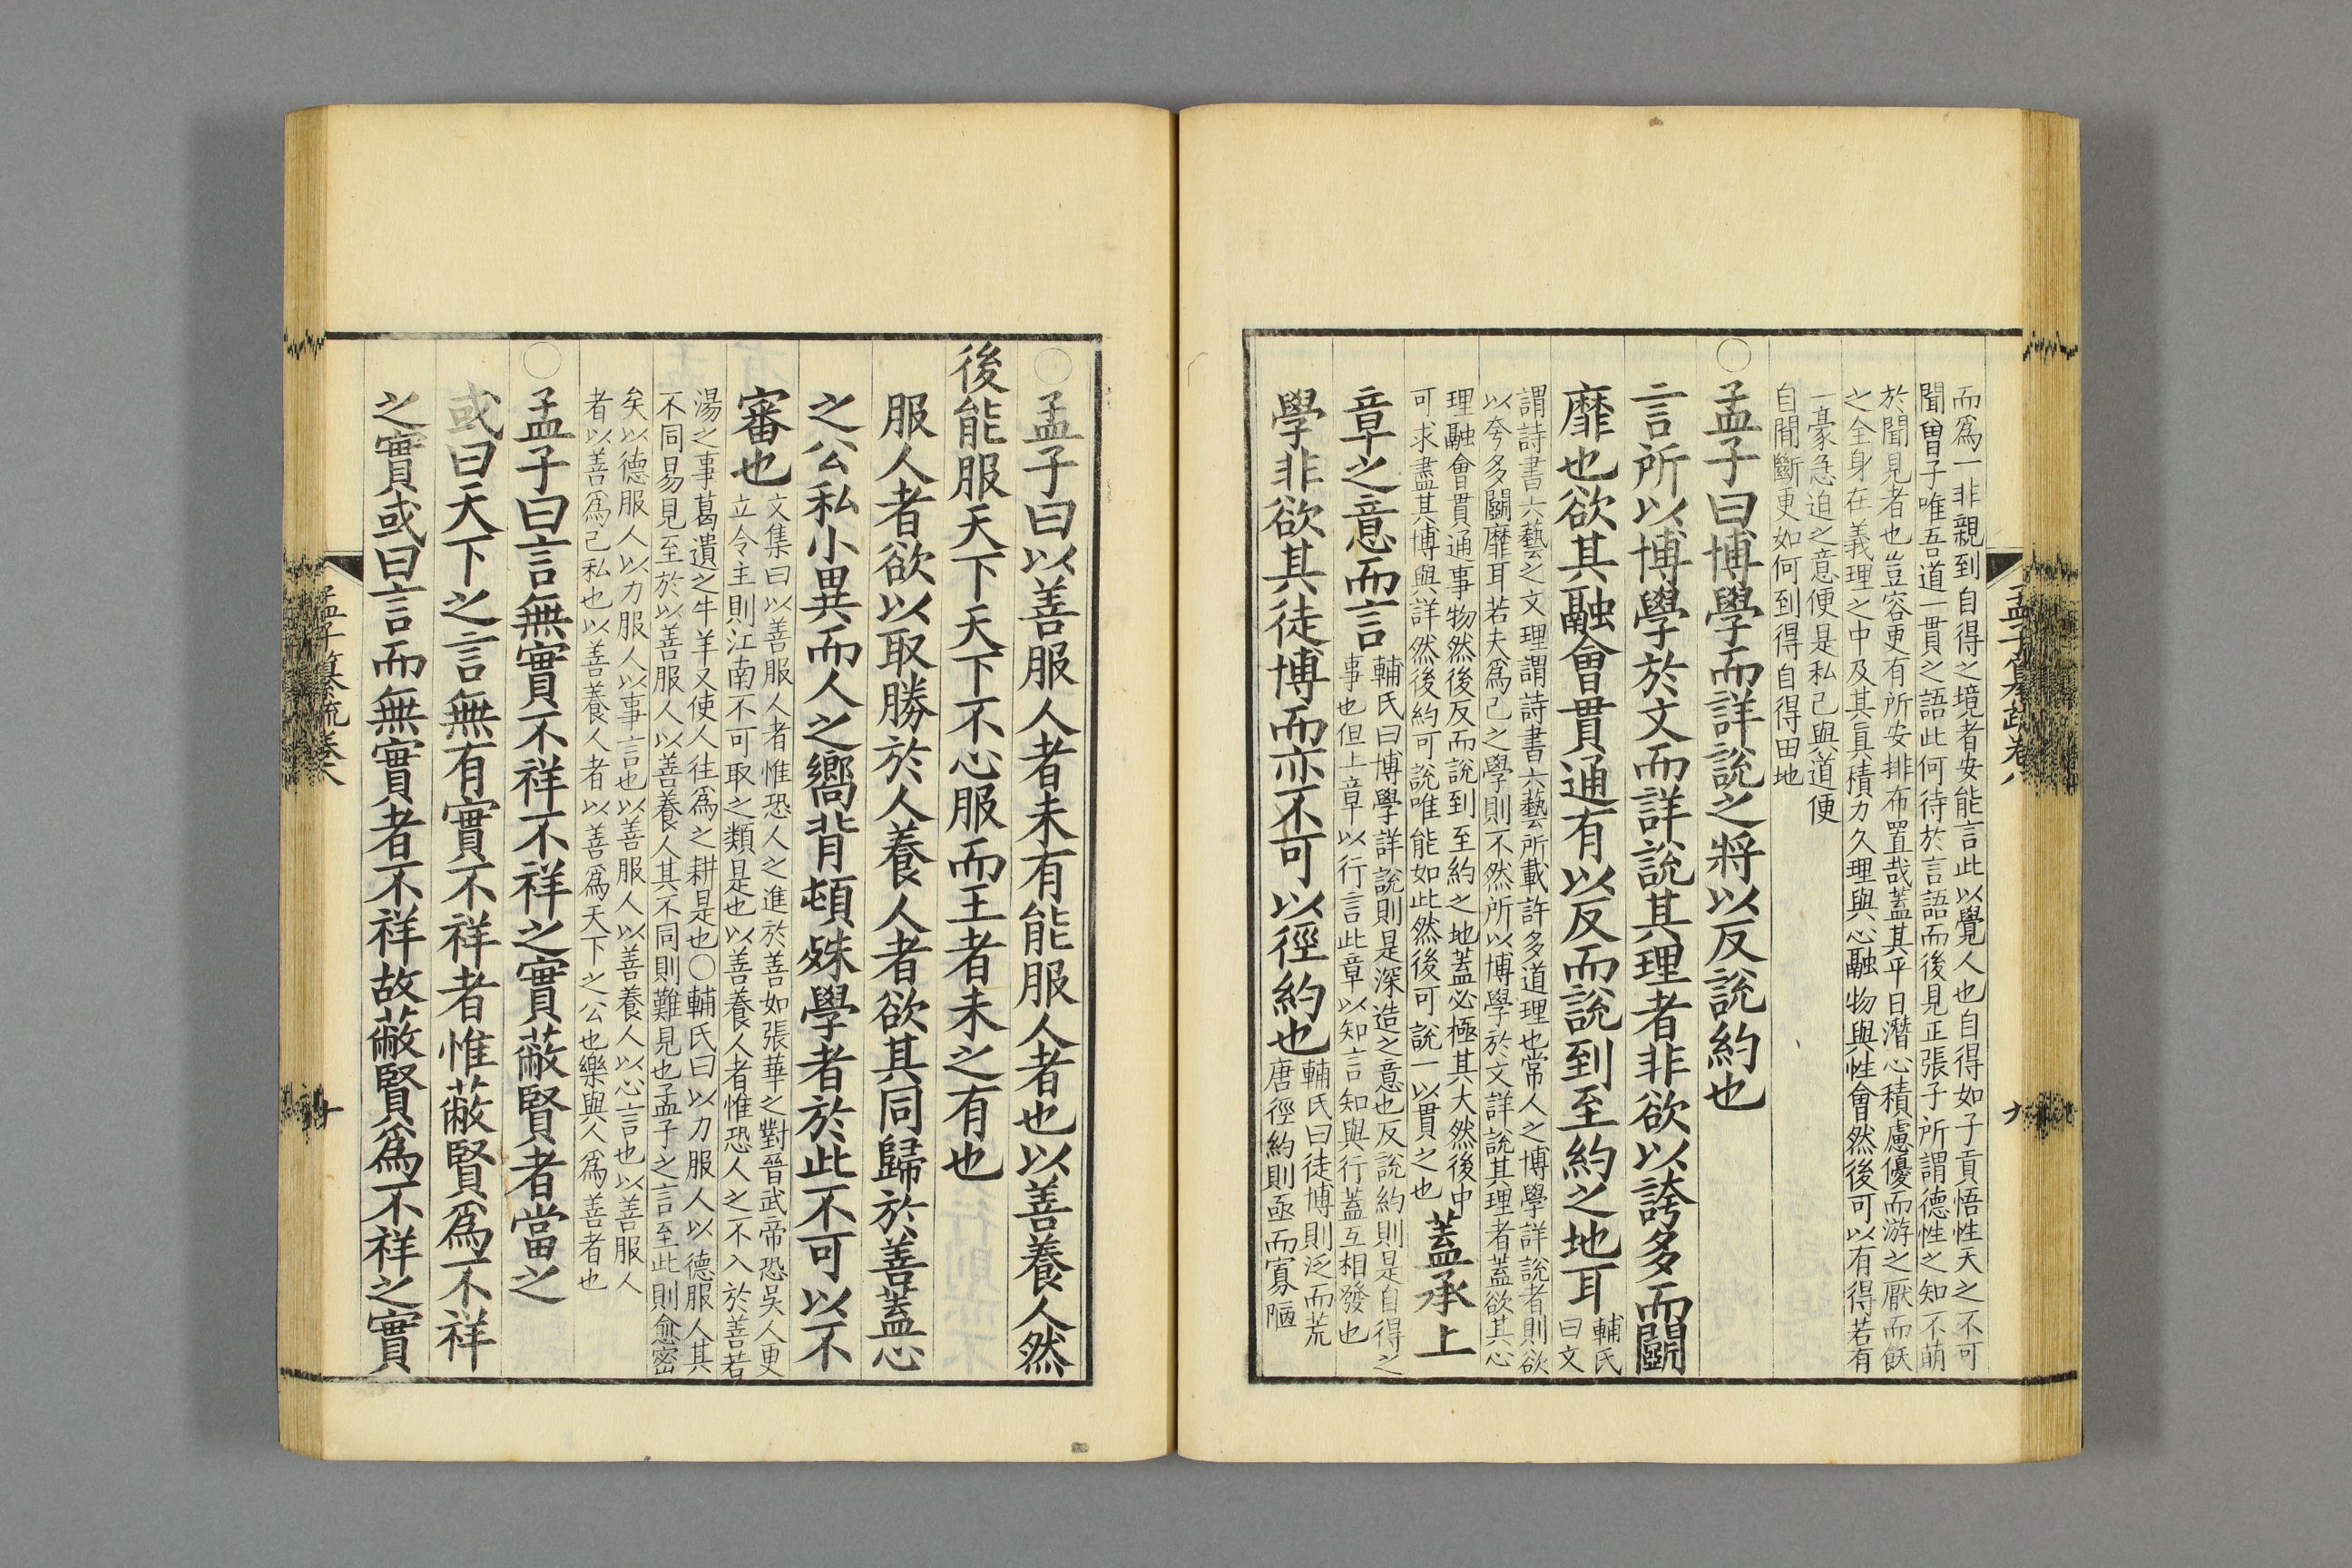 孟子纂疏卷八
九
而爲一非親到自得之境者安能言此以覺人也自得如子貢悟性天之不可
聞曾子唯吾道一貫之語此何待於言語而後見正張子所謂德性之知不萌
於聞見者也豈容更有所安排布置哉蓋其平日潛心積慮優而游之厭而飫
之全身在義理之中及其眞積力久理與心融物與性會然後可以有得若有
一豪急迫之意便是私己與道便
自間斷更如何到得自得田地
○孟子曰博學而詳說之將以反說約也
言所以博學於文而詳說其理者非欲以誇多而鬭
靡也欲其融會貫通有以反而說到至約之地耳輔氏
曰文
謂詩書六藝之文理謂詩書六藝所載許多道理也常人之博學詳說者則欲
以夸多鬭靡耳若夫爲己之學則不然所以博學於文詳說其理者蓋欲其心
理融會貫通事物然後反而說到至約之地蓋必極其大然後中
可求盡其博與詳然後約可說唯能如此然後可說一以貫之也
蓋承上
章之意而言
輔氏曰博學詳說則是深造之意也反說約則是自得之
事也但上章以行言此章以知言知與行蓋互相發也
學非欲其徒博而亦不可以徑約也
輔氏曰徒博則泛而荒
唐徑約則亟而寡陋
○孟子曰以善服人者未有能服人者也以善養人然
後能服天下天下不心服而王者未之有也
服人者欲以取勝於人養人者欲其同歸於善蓋心
之公私小異而人之嚮背頓殊學者於此不可以不
審也
文集曰以善服人者惟恐人之進於善如張華之對晉武帝恐吳人更
立令主則江南不可取之類是也以善養人者惟恐人之不入於善若
湯之事葛遺之牛羊又使人往爲之耕是也○輔氏曰以力服人以德服人其
不同易見至於以善服人以善養人其不同則難見也孟子之言至此則愈密
矣以德服人以力服人以事言也以善服人以善養人以心言也以善服人
者以善爲己私也以善養人者以善爲天下之公也樂與人爲善者也
○孟子曰言無實不祥不祥之實蔽賢者當之
或曰天下之言無有實不祥者惟蔽賢爲不祥
之實或曰言而無實者不祥故蔽賢爲不祥之實
孟子纂疏卷八
十